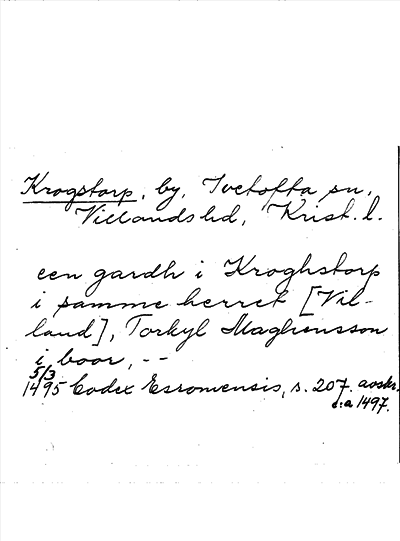 Krogstorp, by, Ivetofta sn,
Villands hd, Krist. l.
een gardh i Kroghstorp
i samme herret [Vil-
land], Torkyl Maghensson
i boor, --
5/3
1495 Codex Esromensis, s. 207. avskr.
c:a 1497.